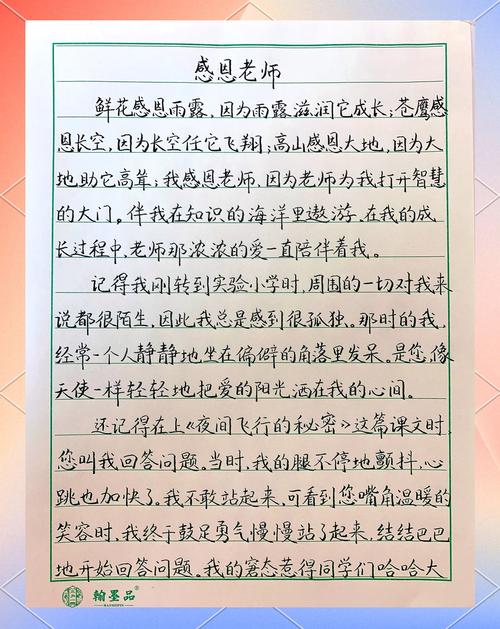 感恩老师
鲜花感恩雨露，因为雨露滋润它成长；苍鹰感
恩长空，因为长空任它飞翔；高山感恩大地，因为大
地助它高耸；我感恩老师，因为老师为我打开智慧
的大门。伴我在知识的海洋里遨游。在我的成
长过程中，老师那浓浓的爱一直陪伴着我。
记得我刚转到实验小学时，周围的一切对我来
说都很陌生，因此我总是感到很孤独。那时的我，
经常一个人静静地坐在偏僻的角落里发呆。是您，像
天使一样轻轻地把爱的阳光洒在我的心间。
还记得在上《夜间飞行的秘密》这篇课文时，
您叫我回答问题。当时，我的腿不停地颤抖，心
跳也加快了。我不敢站起来，可看到您嘴角温暖的
笑容时，我终于鼓足勇气慢慢站了起来，结结巴巴
地开始回答问题。我的窘态惹得同学们哈哈大
翰墨品
HANMOPIN